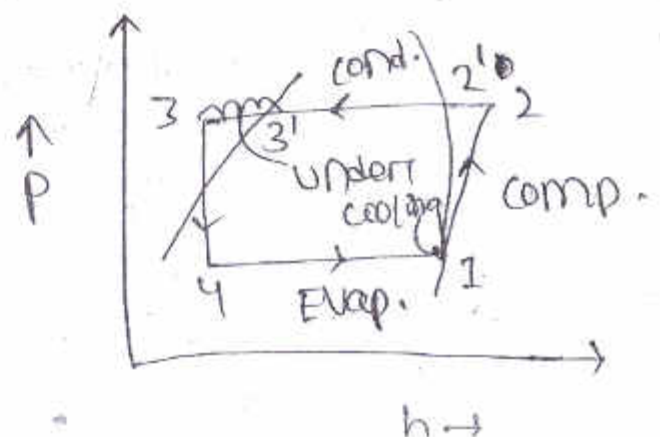 cond.
2'
3
2
3'
↑
P
Under
cooling
comp.
4
1
Evap.
h →